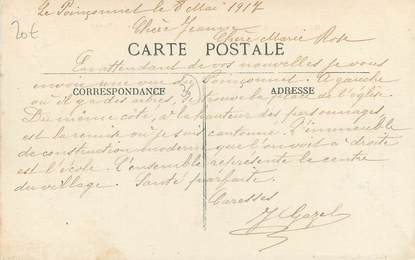 20€
Le Poinçonnet le 8 Mai 1917
Chère Jeanne
Chère Marie Rose
CARTE POSTALE
En attendant de vos nouvelles je vous
envoie une vue du Poinçonnet. A gauche
CORRESPONDANCE
ADRESSE
où il y a des arbres, se trouve la place de l'église.
Du même coté, à la hauteur des personnages,
est la remise où je suis cantonné. L'immeuble
de construction moderne que l'on voit à droite
est l'école. L'ensemble représente le centre
du village. Santé parfaite.
Caresses
J Gazel